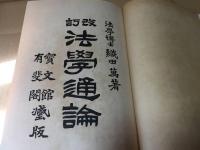 法學博士織田萬著
改訂
法學通論
寶文館
有斐閣藏版